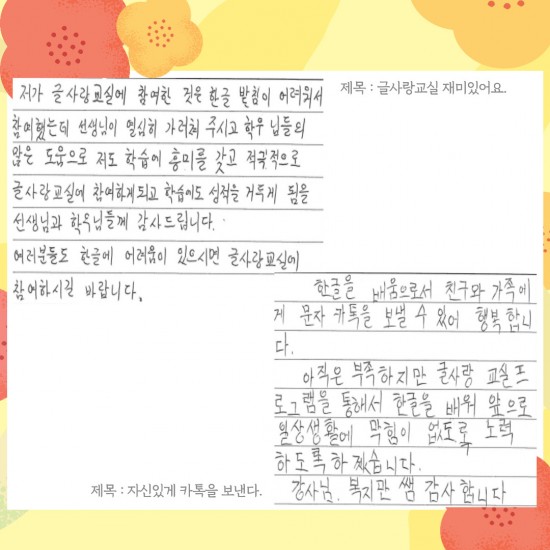 저가 글사랑교실에 참여한 것은 한글 받힘이 어려워서
제목 : 글사랑교실 재미있어요.
참여했는데 선생님이 열심히 가려쳐 주시고 학우 님들의
많은 도움으로 저도 학습에 흥미를 갖고 적극적으로
글사랑교실에 참여하게되고 학습에도 성적을 거두게 됨을
선생님과 학우님들께 감사드립니다.
여러분들도 한글에 어려움이 있으시면 글사랑교실에
참여하시길 바랍니다.
한글을 배움으로서 친구와 가족에
게 문자 카톡을 보낼 수 있어 행복합니
다.
아직은 부족하지만 글사랑 교실프
로그램을 통해서 한글을 배워 앞으로
일상생활에 막힘이 없도록 노력
하도록 하겠습니다.
제목 : 자신있게 카톡을 보낸다.
강사님. 복지만 쌤 감사합니다